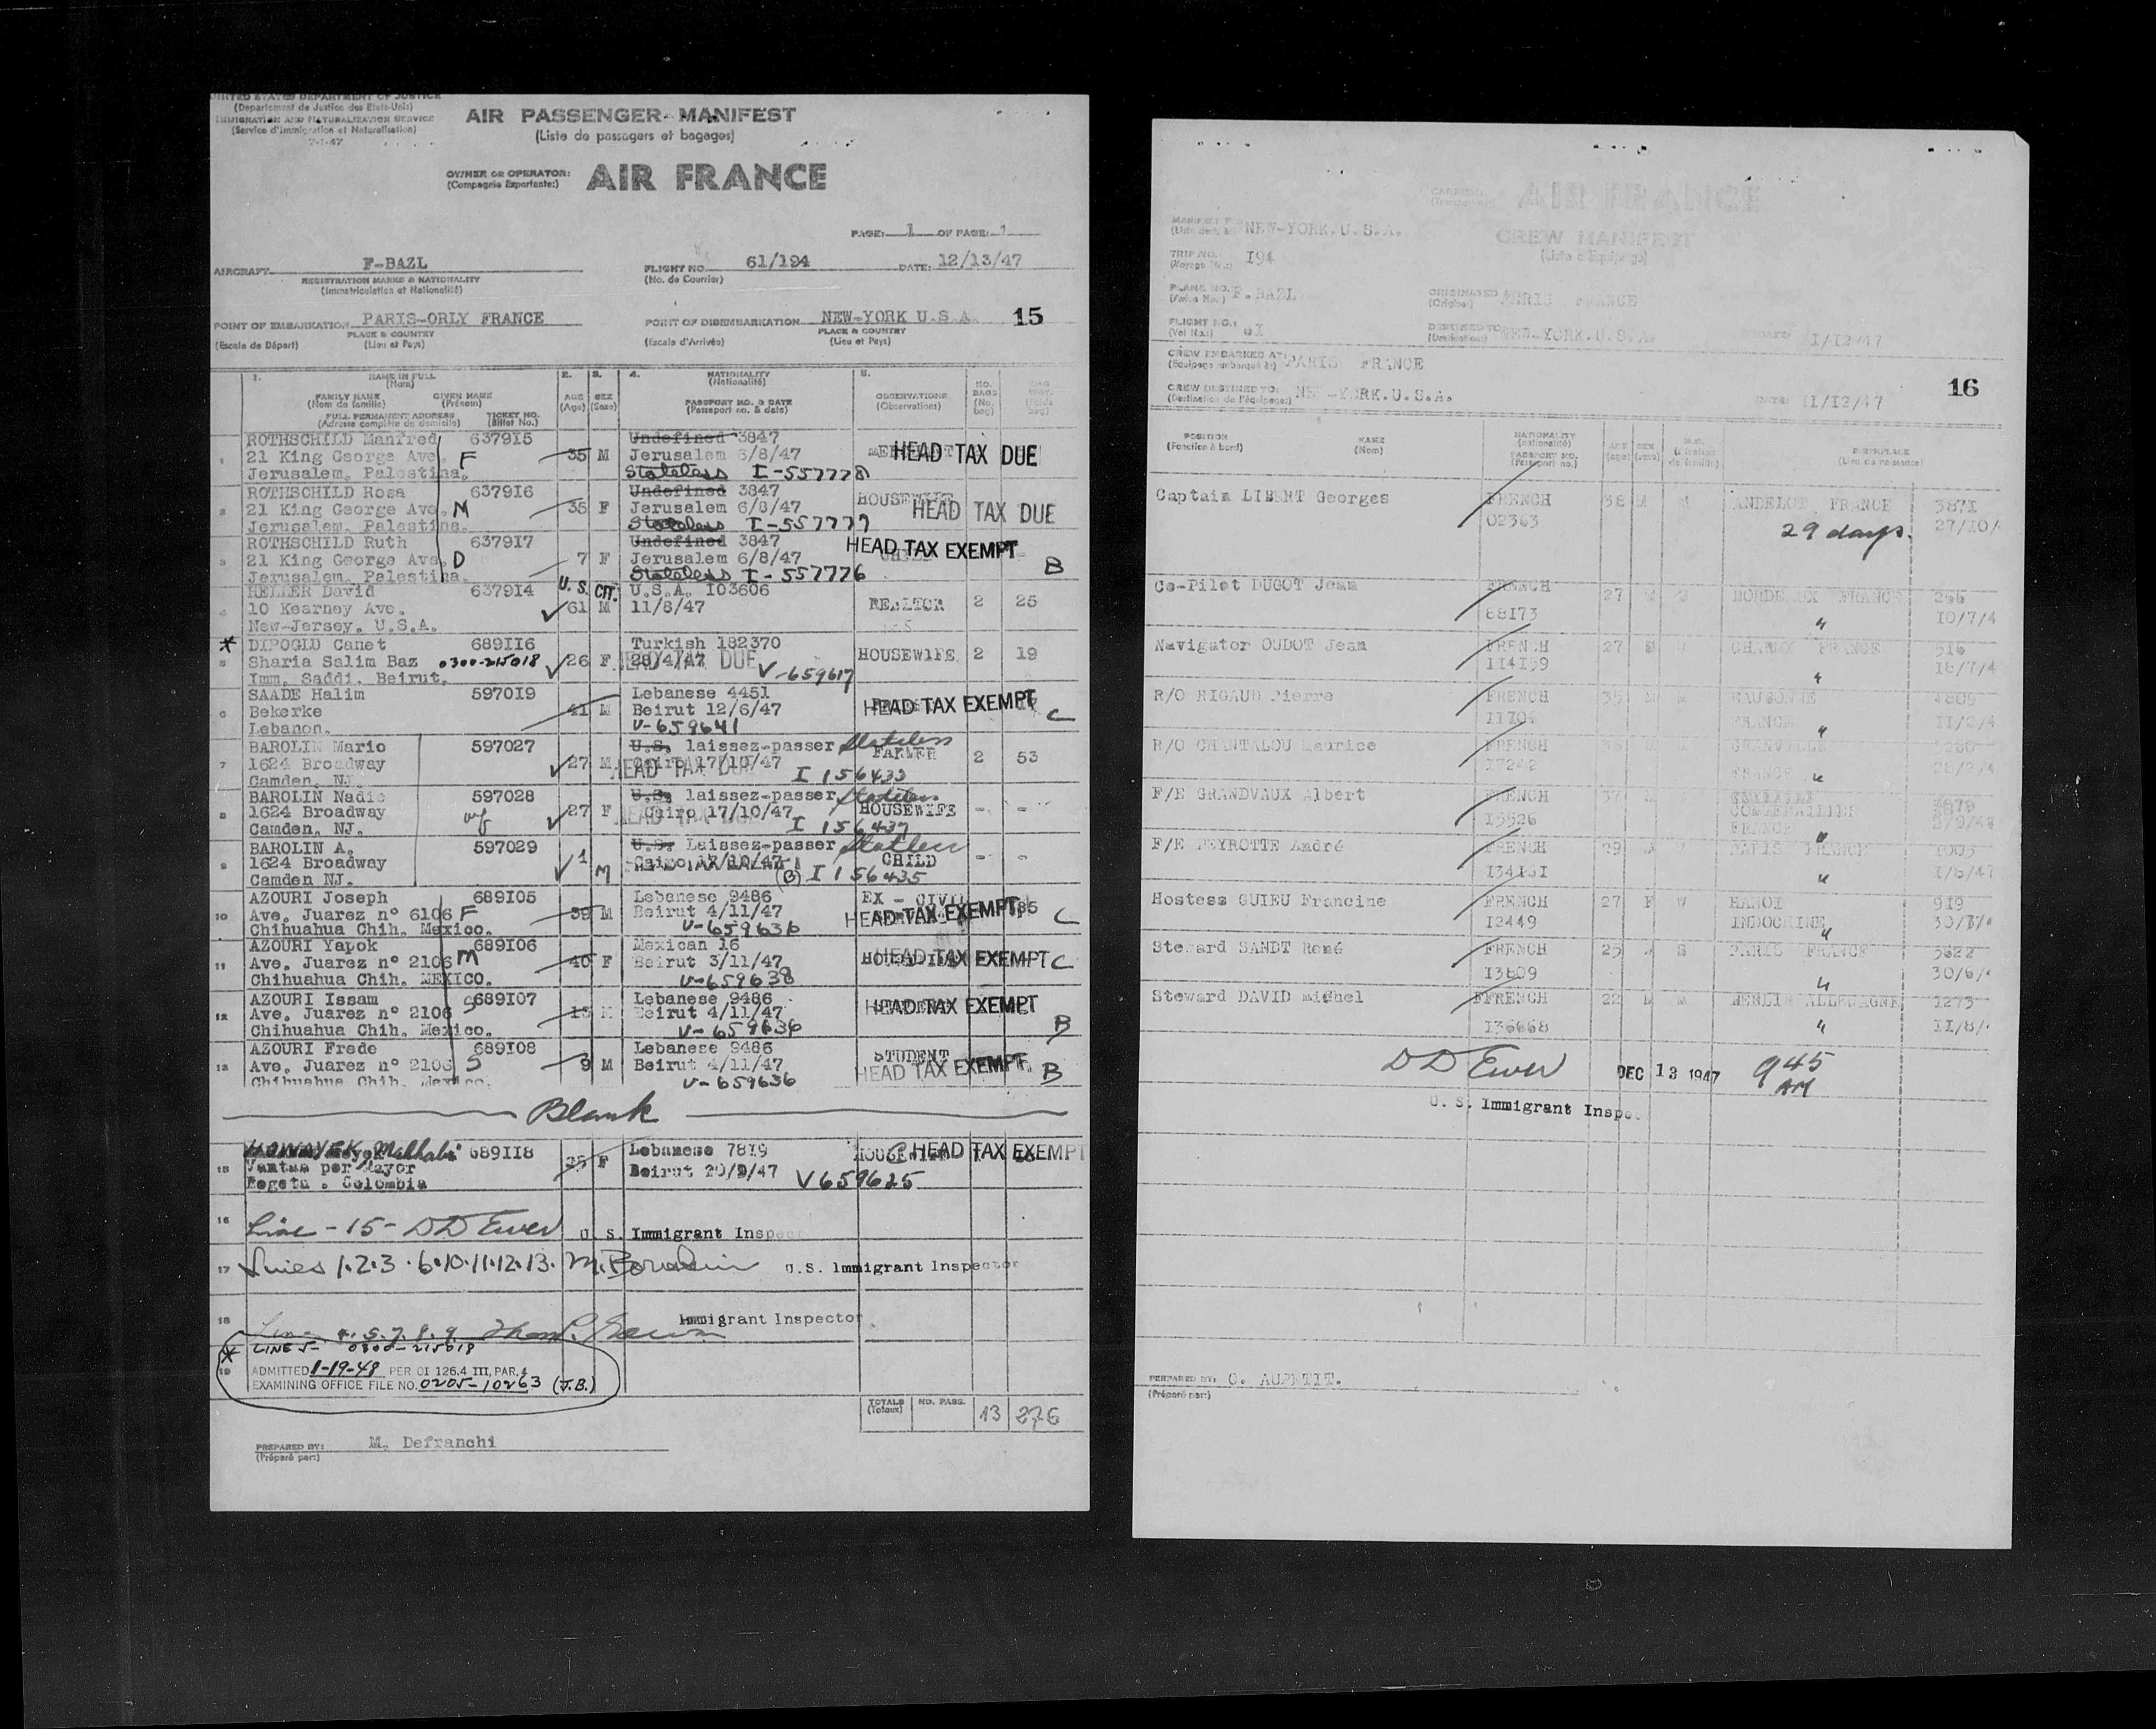 UNITED STATES DEPARTMENT OF JUSTICE
(Departement de Justice des Etats-Unis)
IMMIGRATION AND NATURALIZATION SERVICE
(Service d'Immigration et Naturalisation)
AIR PASSENGER MANIFEST
(Liste de passagers et bagages)
OWNER OR OPERATOR:
(Compagnie Exportante:)
AIR FRANCE
PAGE: 1 OF PAGE: 1
AIRCRAFT F-BAZL
REGISTRATION MARKS & NATIONALITY
(Immatriculation et Nationalité)
FLIGHT NO. 61/194 DATE: 12/13/47
(No. de Courrier)
POINT OF EMBARKATION PARIS-ORLY FRANCE
PLACE & COUNTRY
(Escale de Départ) (Lieu et Pays)
POINT OF DISEMBARKATION NEW-YORK U.S.A. 15
PLACE & COUNTRY
(Escale d'Arrivée) (Lieu et Pays)
1. NAME IN FULL
(Nom)
FAMILY NAME GIVEN NAME
(Nom de famille) (Prénom)
FULL PERMANENT ADDRESS TICKET NO.
(Adresse complète de domicile) (Billet No.)
2. AGE (Age)
3. SEX (Sexe)
4. NATIONALITY
(Nationalité)
PASSPORT NO. & DATE
(Passeport no. & date)
5. OBSERVATIONS
(Observations)
NO. BAGS (No. bag)
1 ROTHSCHILD Manfred 637915 Undefined 3847
21 King George Ave. F 35 M Jerusalem 6/8/47 HEAD TAX DUE
Jerusalem. Palestina. Stateless I-557778
2 ROTHSCHILD Rosa 637916 Undefined 3847 HOUSEWIFE
21 King George Ave. M 35 F Jerusalem 6/8/47 HEAD TAX DUE
Jerusalem. Palestina. Stateless I-557777
3 ROTHSCHILD Ruth 637917 Undefined 3847 HEAD TAX EXEMPT
21 King George Ave. D 7 F Jerusalem 6/8/47 B
Jerusalem. Palestina. Stateless I-557776
4 HELLER David 637914 U.S. CIT. U.S.A. I03606
10 Kearney Ave. 61 M 11/8/47 REALTOR 2 25
New-Jersey. U.S.A.
* DIPOGLU Canet 689116 Turkish 182370
5 Sharia Salim Baz 0300-215018 26 F 28/4/47 HEAD TAX DUE HOUSEWIFE 2 19
Imm. Saddi. Beirut. V-659617
6 SAADE Halim 597019 Lebanese 4451
Bekerke 41 M Beirut 12/6/47 HEAD TAX EXEMPT C
Lebanon. V-659641
7 BAROLIN Mario 597027 U.S. laissez-passer Stateless
1624 Broadway 27 M Cairo 17/10/47 HEAD TAX DUE FARMER 2 53
Camden. NJ. I 156433
8 BAROLIN Nadie 597028 U.S. laissez-passer Stateless
1624 Broadway wf 27 F Cairo 17/10/47 HOUSEWIFE - -
Camden. NJ. I 156437
9 BAROLIN A. 597029 U.S. Laissez-passer Stateless
1624 Broadway 1 M Cairo 17/10/47 CHILD - -
Camden NJ. (B) I 156435
10 AZOURI Joseph 689105 Lebanese 9486 EX - CIVIL
Ave. Juarez n° 6106 F 39 M Beirut 4/11/47 HEAD TAX EXEMPT C
Chihuahua Chih. Mexico. V-659636
11 AZOURI Yapok 689106 Mexican 16
Ave. Juarez n° 2106 M 40 F Beirut 3/11/47 HEAD TAX EXEMPT C
Chihuahua Chih. MEXICO. V-659638
12 AZOURI Issam 689107 Lebanese 9486
Ave. Juarez n° 2106 S Beirut 4/11/47 HEAD TAX EXEMPT
Chihuahua Chih. Mexico. V-659636 B
13 AZOURI Frede 689108 Lebanese 9486 STUDENT
Ave. Juarez n° 2106 S 9 M Beirut 4/11/47 HEAD TAX EXEMPT B
Chihuahua Chih. Mexico. V-659636
Blank
689118 Lebanese 7819 HEAD TAX EXEMPT
15 35 F Beirut 20/9/47 V659625
Bogota. Colombia
16 Line - 15 - DD Ewer U. S. Immigrant Inspector
17 Lines 1.2.3.6.10.11.12.13. U.S. Immigrant Inspector
18 Immigrant Inspector
* LINE 5- 0300-215018
19 ADMITTED 1-19-48 PER OI 126.4 III, PAR. 4
EXAMINING OFFICE FILE NO. 0205-10263 (J.B.)
TOTALS (Totaux) NO. PASS. 13 276
PREPARED BY: M. Defranchi
(Préparé par:)
AIR FRANCE
MANIFEST NEW-YORK.U.S.A.
CREW MANIFEST
(Liste d'Equipage)
TRIP NO.: I94
PLANE NO. F.BAZL
ORIGINATED PARIS FRANCE
(Origine)
FLIGHT NO.:
(Vol No.:)
DESTINED TO NEW-YORK.U.S.A. DATE: 11/12/47
CREW EMBARKED AT: PARIS FRANCE
(Equipage embarqué à)
CREW DESTINED TO: NEW-YORK.U.S.A. DATE: 11/12/47 16
(Destination de l'équipage:)
POSITION NAME NATIONALITY AGE SEX BIRTHPLACE
(Fonction à bord) (Nom) (nationalité) (Lieu de naissance)
PASSPORT NO.
(Passeport no.)
Captain LIBERT Georges FRENCH 38 M M ANDELOT FRANCE 3871
02363 29 days. 27/10/
Co-Pilot DUGOT Jean FRENCH 27 BORDEAUX FRANCE
88173 " 10/7/4
Navigator OUDOT Jean FRENCH 27 FRANCE 516
114159 " 18/7/4
R/O RIGAUD Pierre FRENCH 35
11706 FRANCE " 11/2/4
R/O CHANTALOU Maurice FRENCH GRANVILLE
17242 FRANCE "
F/E GRANDVAUX Albert FRENCH 37
15526 FRANCE "
F/E PEYROTTE André FRENCH 29 PARIS FRANCE 1005
134161 " 1/6/47
Hostess GUIEU Francine FRENCH 27 F HANOI 919
12449 INDOCHINE "
Steward SANDT René FRENCH 25 S PARIS FRANCE 3622
13809 " 30/6/
Steward DAVID Michel FRENCH 22 M BERLIN ALLEMAGNE 1273
136668 " 11/8/
DD Ewer DEC 13 1947 9 45 AM
U. S. Immigrant Inspe.
PREPARED BY: G. AUPETIT.
(Préparé par:)